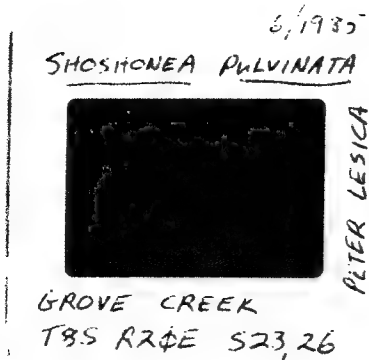 6/1985
SHOSHONEA PULVINATA
PETER LESICA
GROVE CREEK
T8S S23,26